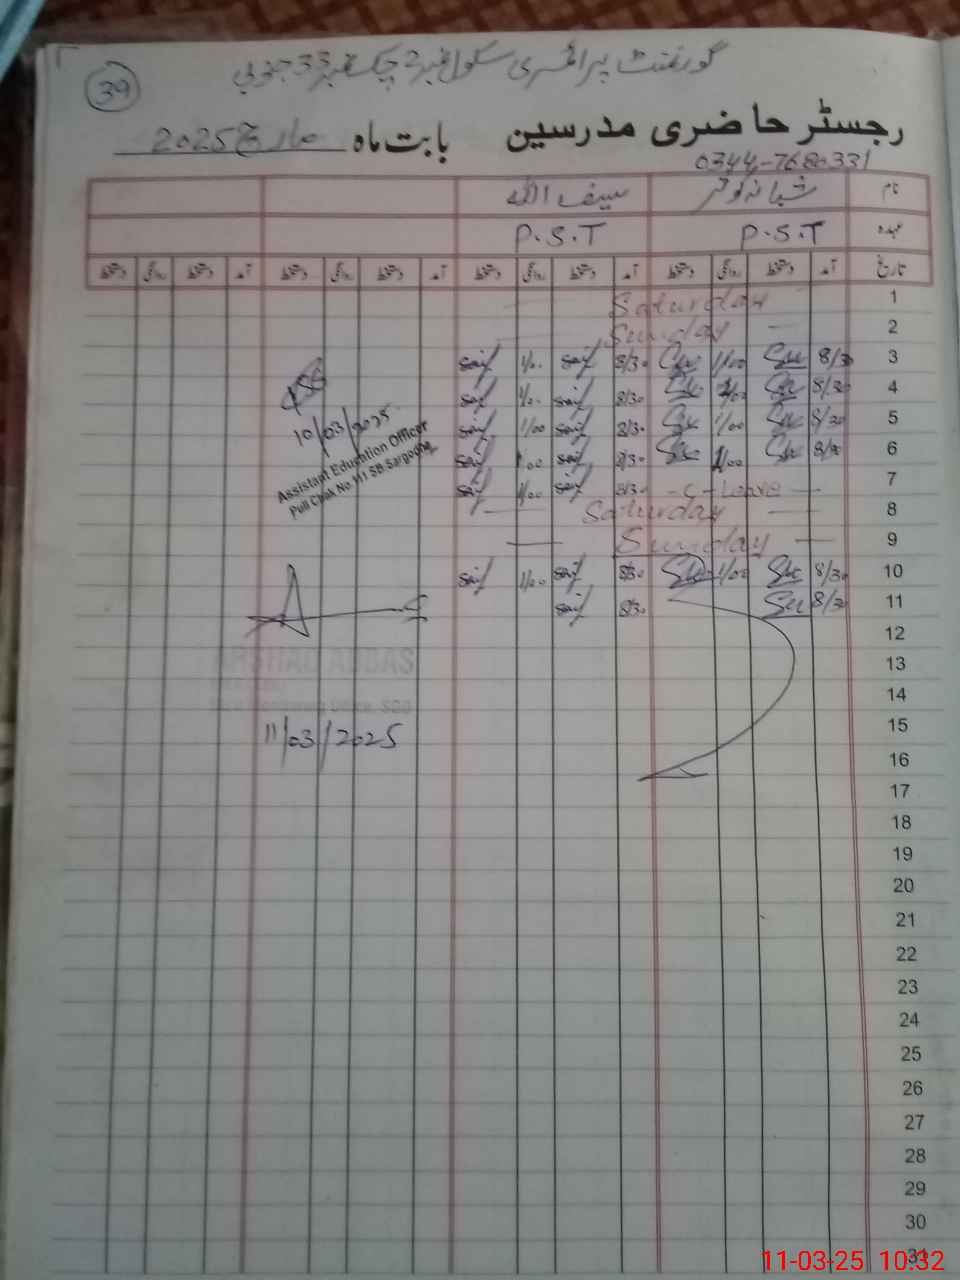 39
گورنمنٹ پرائمری سکول نمبر 2 چک نمبر 33 جنوبی
رجسٹر حاضری مدرسین بابت ماہ مارچ 2025
0344-7680331
نام شبانہ کوثر سیف اللہ
عہدہ P.S.T P.S.T
تاریخ آمد دستخط روانگی دستخط آمد دستخط روانگی دستخط آمد دستخط روانگی دستخط آمد دستخط روانگی دستخط
1 Saturday
2 Sunday
3 8/30 1/00 8/30 saif 1/0. saif
4 8/30 1/00 8/30 saif 1/0. saif
5 8/30 1/00 8/30 saif 1/00 saif
6 8/30 1/00 8/30 saif 1/00 saif
7 -C-Leave- 8/30 saif 1/00 saif
8 Saturday
9 Sunday
10 8/30 1/00 8/30 saif 1/00 saif
11 8/30 8/30 saif
12
13
14
15
16
17
18
19
20
21
22
23
24
25
26
27
28
29
30
31
10/03/2025
Assistant Education Officer
Pull Chak No.111 SB.Sargodha
ARSHAD ABBAS
11/03/2025
11-03-25 10:32